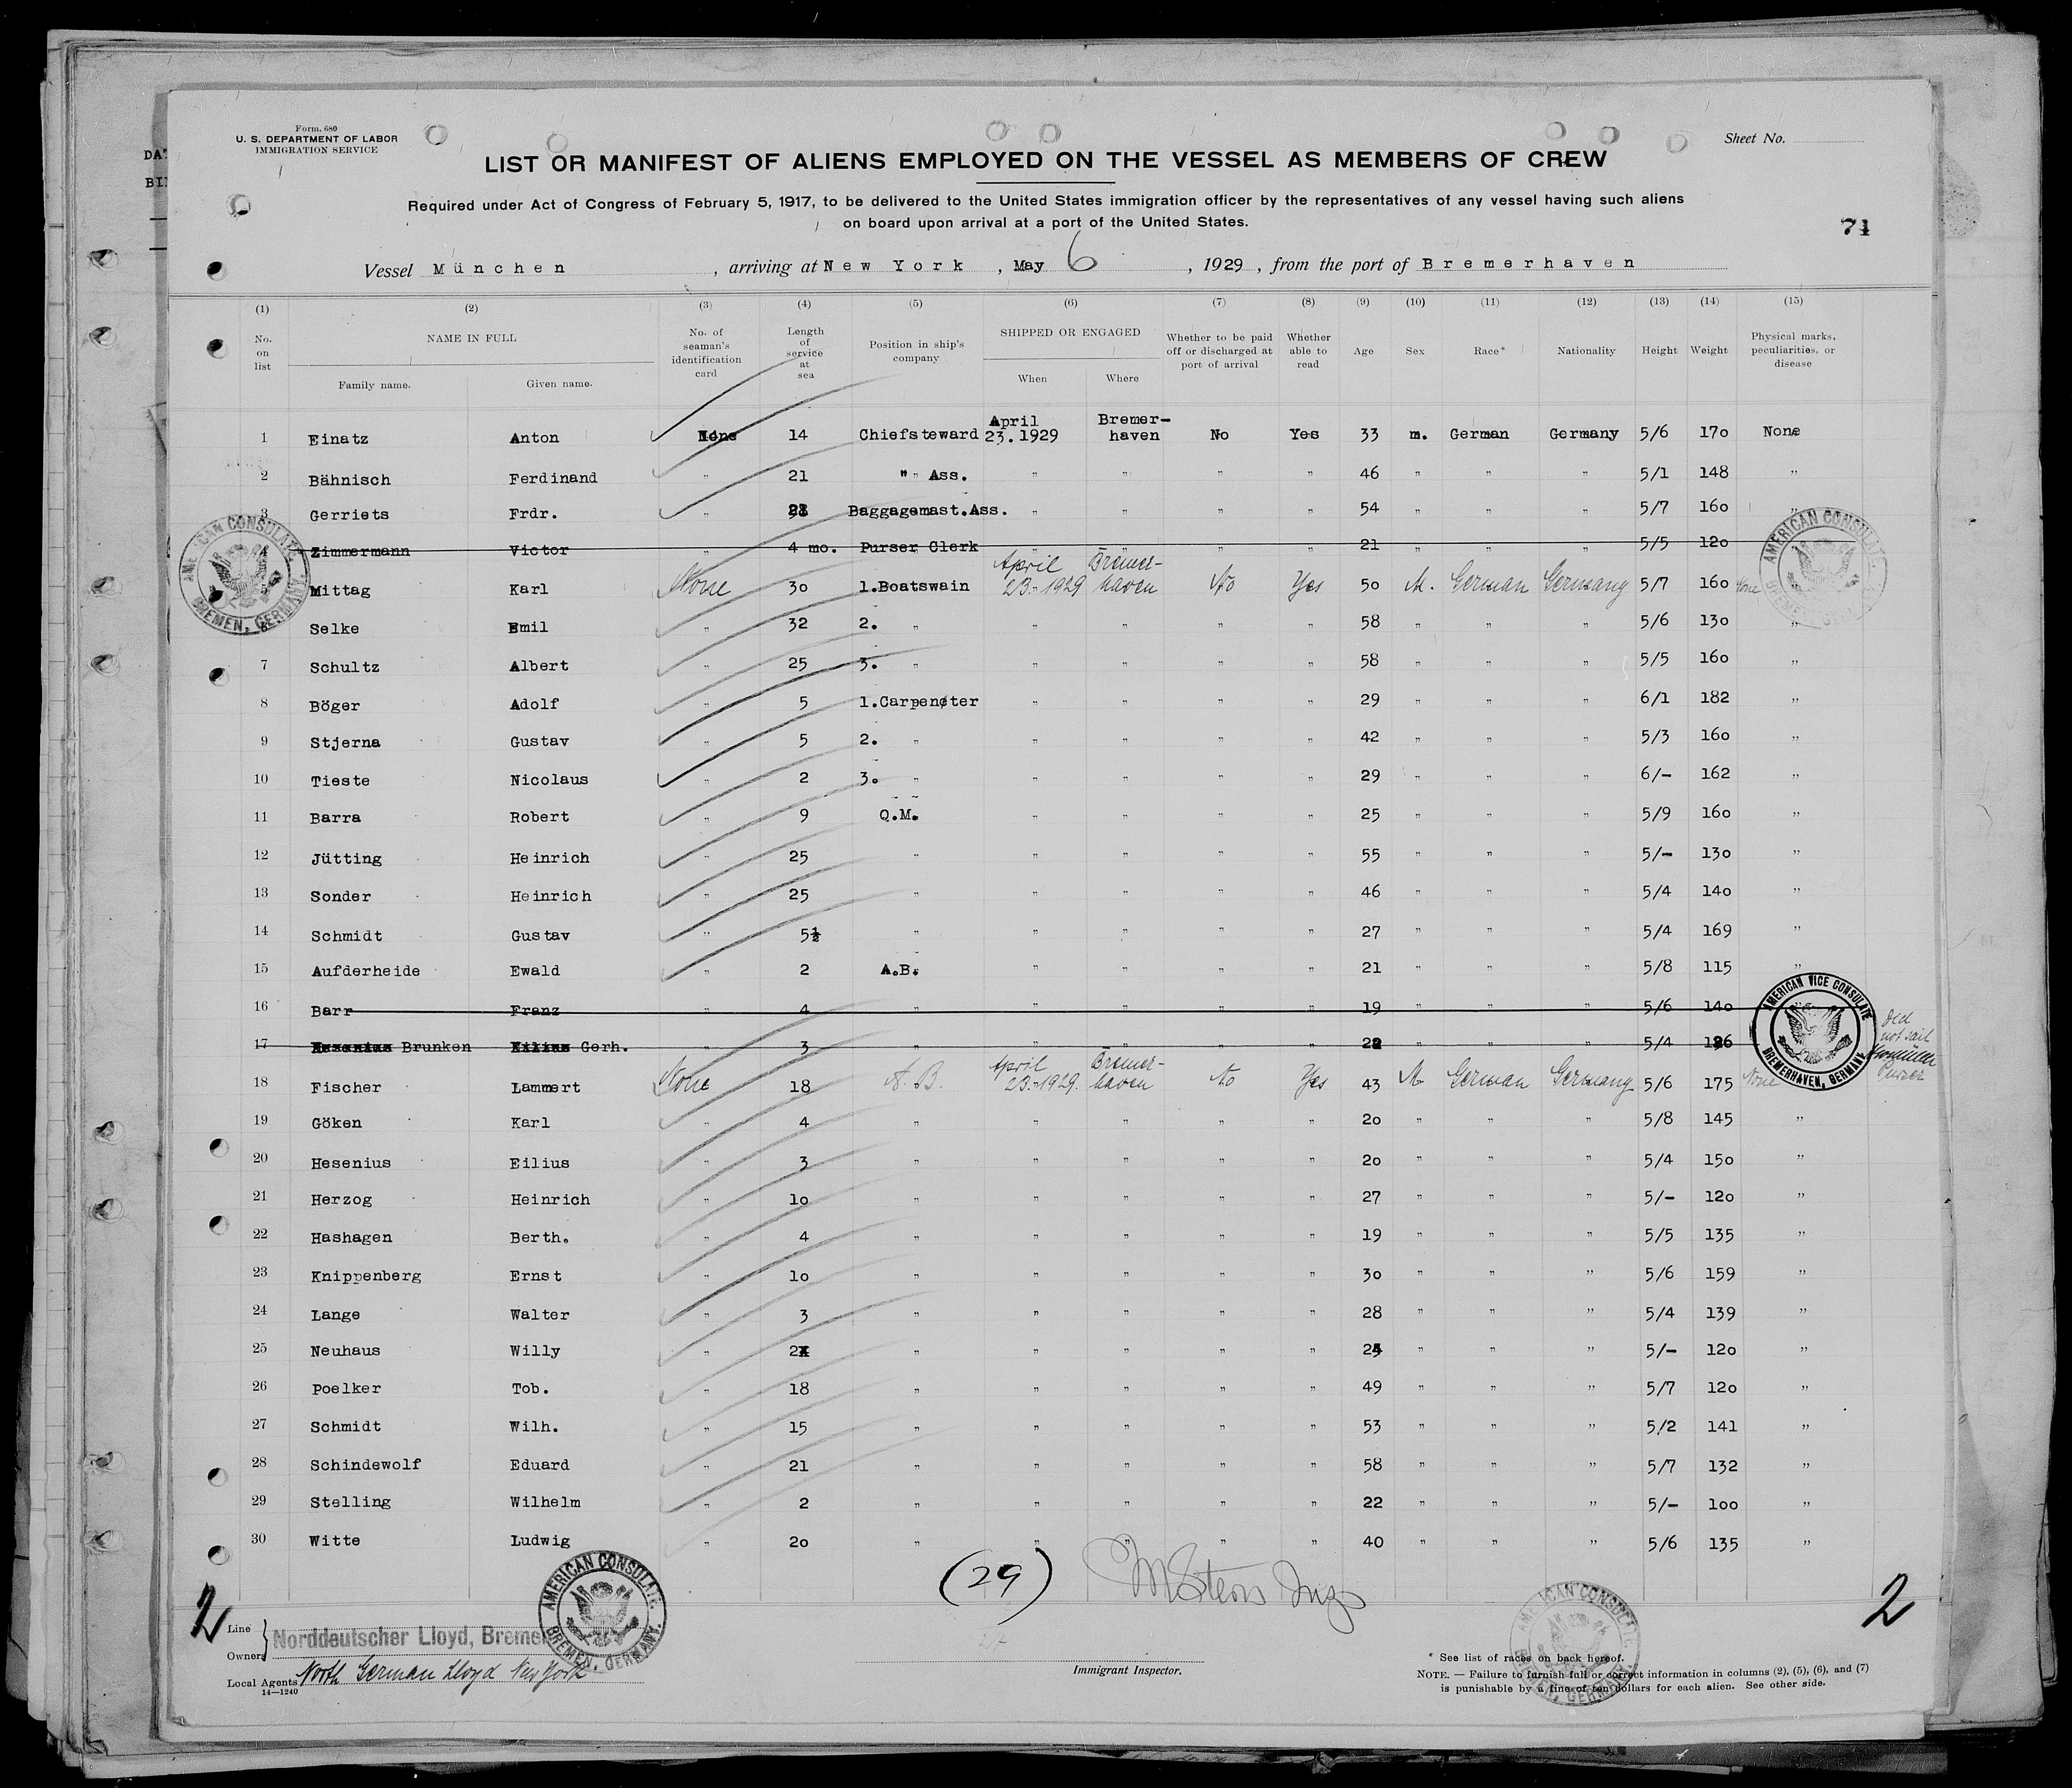 DAT
BII
Form. 680
U. S. DEPARTMENT OF LABOR
IMMIGRATION SERVICE
Sheet No.
LIST OR MANIFEST OF ALIENS EMPLOYED ON THE VESSEL AS MEMBERS OF CREW
Required under Act of Congress of February 5, 1917, to be delivered to the United States immigration officer by the representatives of any vessel having such aliens
on board upon arrival at a port of the United States.
71
Vessel München , arriving at New York , May 6 , 1929 , from the port of Bremerhaven
(1) (2) (3) (4) (5) (6) (7) (8) (9) (10) (11) (12) (13) (14) (15)
No. on list NAME IN FULL Family name. Given name. No. of seaman's identification card Length of service at sea Position in ship's company SHIPPED OR ENGAGED When Where Whether to be paid off or discharged at port of arrival Whether able to read Age Sex Race* Nationality Height Weight Physical marks, peculiarities, or disease
1 Einatz Anton None 14 Chiefsteward April 23.1929 Bremerhaven No Yes 33 m. German Germany 5/6 170 None
2 Bähnisch Ferdinand " 21 " " Ass. " " " " 46 " " " 5/1 148 "
3 Gerriets Frdr. " Baggagemast.Ass. " " " " 54 " " " 5/7 160 "
4 Zimmermann Victor " 4 mo. Purser Clerk " " " " 21 " " " 5/5 120
5 Mittag Karl None 30 1.Boatswain April 23.-1929 Bremer-haven No Yes 50 M. German Germany 5/7 160 None
6 Selke Emil " 32 2. " " " " " 58 " " " 5/6 130 "
7 Schultz Albert " 25 3. " " " " " 58 " " " 5/5 160 "
8 Böger Adolf " 5 1.Carpenter " " " " 29 " " " 6/1 182 "
9 Stjerna Gustav " 5 2. " " " " " 42 " " " 5/3 160 "
10 Tieste Nicolaus " 2 3. " " " " " 29 " " " 6/- 162 "
11 Barra Robert " 9 Q.M. " " " " 25 " " " 5/9 160 "
12 Jütting Heinrich " 25 " " " " " 55 " " " 5/- 130 "
13 Sonder Heinrich " 25 " " " " " 46 " " " 5/4 140 "
14 Schmidt Gustav " 5½ " " " " " 27 " " " 5/4 169 "
15 Aufderheide Ewald " 2 A.B. " " " " 21 " " " 5/8 115 "
16 Barr Franz " 4 " " " " " 19 " " " 5/6 140 "
17 Brunken Gerh. " 3 " " " " " 22 " " " 5/4 126
Did not sail
Purser
18 Fischer Lammert None 18 A.B. April 23.-1929. Bremer-haven No Yes 43 M German Germany 5/6 175 None
19 Göken Karl " 4 " " " " " 20 " " " 5/8 145 "
20 Hesenius Eilius " 3 " " " " " 20 " " " 5/4 150 "
21 Herzog Heinrich " 10 " " " " " 27 " " " 5/- 120 "
22 Hashagen Berth. " 4 " " " " " 19 " " " 5/5 135 "
23 Knippenberg Ernst " 10 " " " " " 30 " " " 5/6 159 "
24 Lange Walter " 3 " " " " " 28 " " " 5/4 139 "
25 Neuhaus Willy " 2 " " " " " " " " 5/- 120 "
26 Poelker Tob. " 18 " " " " " 49 " " " 5/7 120 "
27 Schmidt Wilh. " 15 " " " " " 53 " " " 5/2 141 "
28 Schindewolf Eduard " 21 " " " " " 58 " " " 5/7 132 "
29 Stelling Wilhelm " 2 " " " " " 22 " " " 5/- 100 "
30 Witte Ludwig " 20 " " " " " 40 " " " 5/6 135 "
AMERICAN CONSULATE. BREMEN, GERMANY.
AMERICAN CONSULATE. BREMEN, GERMANY.
AMERICAN VICE CONSULATE BREMERHAVEN, GERMANY
(29)
2
2
Line
Owners
Norddeutscher Lloyd, Bremen
Local Agents North German Lloyd New York
14—1240
AMERICAN CONSULATE. BREMEN, GERMANY.
AMERICAN CONSULATE. BREMEN, GERMANY.
Immigrant Inspector.
* See list of races on back hereof.
NOTE. — Failure to furnish full or correct information in columns (2), (5), (6), and (7)
is punishable by a fine of ten dollars for each alien. See other side.